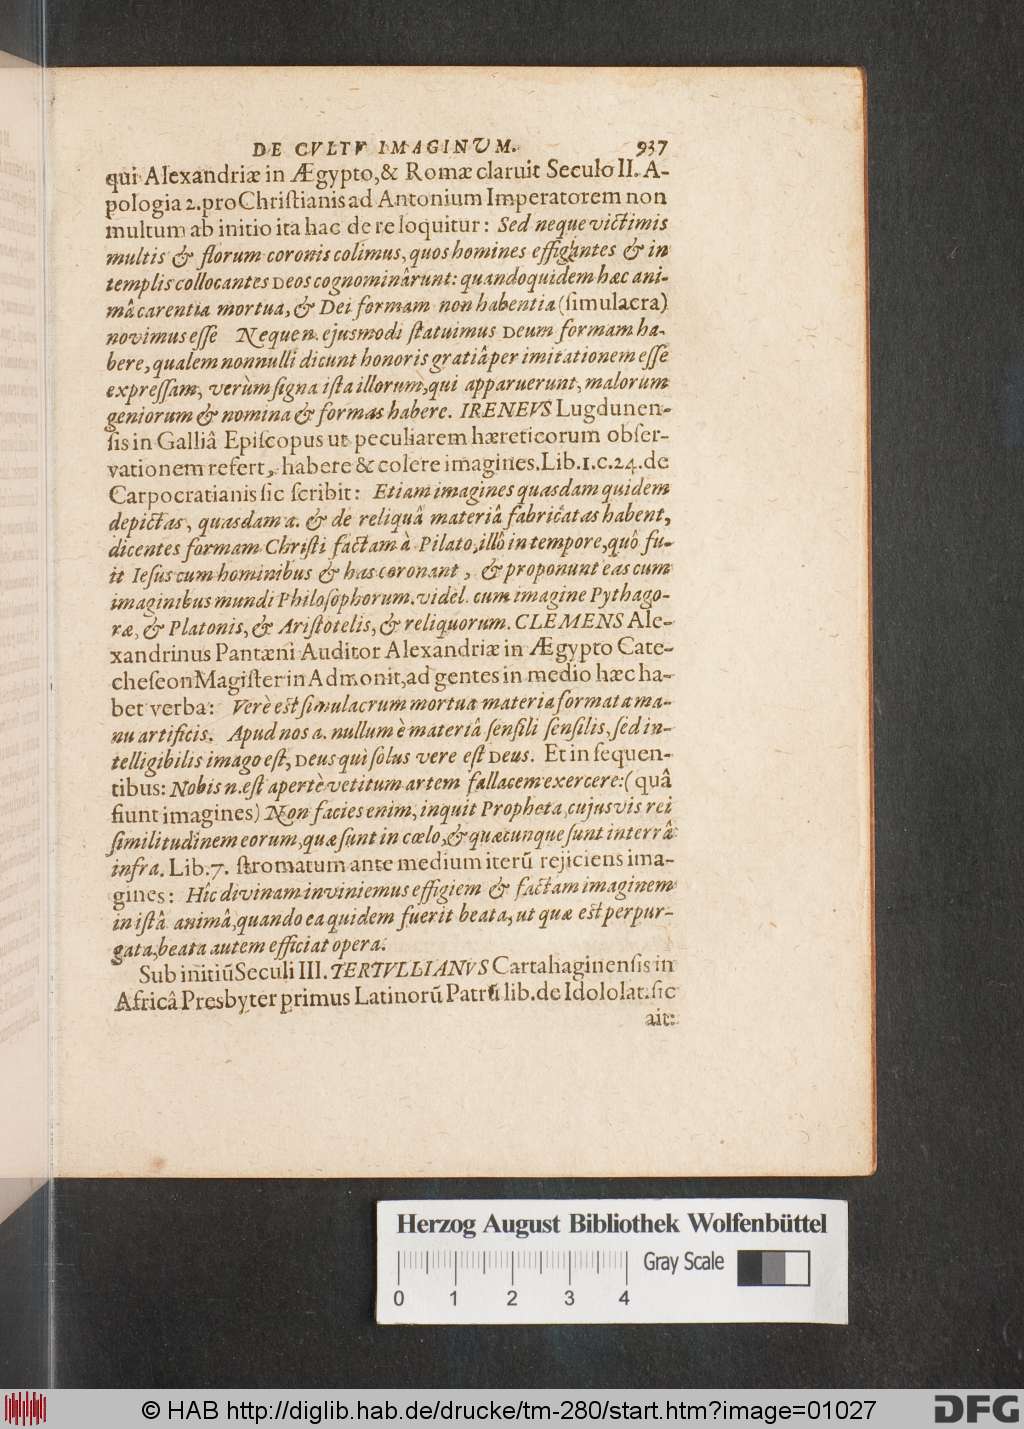 DE CVLTV IMAGINUM. 937
qui Alexandriæ in Ægypto, & Romæ claruit Seculo II. A-
pologia 2. pro Christianis ad Antonium Imperatorem non
multum ab initio ita hac de re loquitur: Sed neque victimis
multis & florum coronis colimus, quos homines effigiantes & in
templis collocantes DEOS cognominârunt: quandoquidem hæc ani-
mâ carentia mortua, & Dei formam non habentia (simulacra)
novimus esse Neque n. ejusmodi statuimus DEUM formam ha-
bere, qualem nonnulli dicunt honoris gratiâ per imitationem esse
expressam, verùm signa ista illorum, qui apparuerunt, malorum
geniorum & nomina & formas habere. IRENEVS Lugdunen-
sis in Galliâ Episcopus ut peculiarem hæreticorum obser-
vationem refert, habere & colere imagines. Lib. 1. c. 24. de
Carpocratianis sic scribit: Etiam imagines quasdam quidem
depictas, quasdam a. & de reliquâ materiâ fabricatas habent,
dicentes formam Christi factam à Pilato, illô in tempore, quô fu-
it Iesus cum hominibus & has coronant, & proponunt eas cum
imaginibus mundi Philosophorum. videl. cum imagine Pythago-
ræ, & Platonis, & Aristotelis, & reliquorum. CLEMENS Ale-
xandrinus Pantæni Auditor Alexandriæ in Ægypto Cate-
cheseon Magister in Admonit, ad gentes in medio hæc ha-
bet verba: Verè est simulacrum mortua materia formata ma-
nu artificis. Apud nos a. nullum è materiâ sensili sensilis, sed in-
telligibilis imago est, DEUS qui solus vere est DEUS. Et in sequen-
tibus: Nobis n. est apertè vetitum artem fallacem exercere: (quâ
fiunt imagines) Non facies enim, inquit Propheta, cujusvis rei
similitudinem eorum, quæ sunt in cœlo, & quæcunque sunt in terrâ
infra. Lib. 7. stromatum ante medium iterũ rejiciens ima-
gines: Hîc divinam inviniemus effigiem & factam imaginem
in istâ animâ, quando ea quidem fuerit beata, ut quæ est perpur-
gata, beata autem efficiat opera.
Sub initiũ Seculi III. TERTVLLIANVS Cartahaginensis in
Africâ Presbyter primus Latinorũ Patrũ lib. de Idololat. sic
ait:
Herzog August Bibliothek Wolfenbüttel
Gray Scale
0 1 2 3 4
© HAB http://diglib.hab.de/drucke/tm-280/start.htm?image=01027
DFG